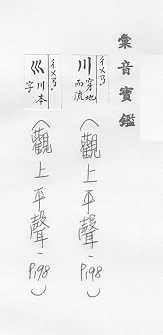 彙音寶鑑
ㄔㄨㄢ
川 穿地
而流
(觀上平聲, P198)
ㄔㄨㄢ
巛 川本
字
(觀上平聲, P198)